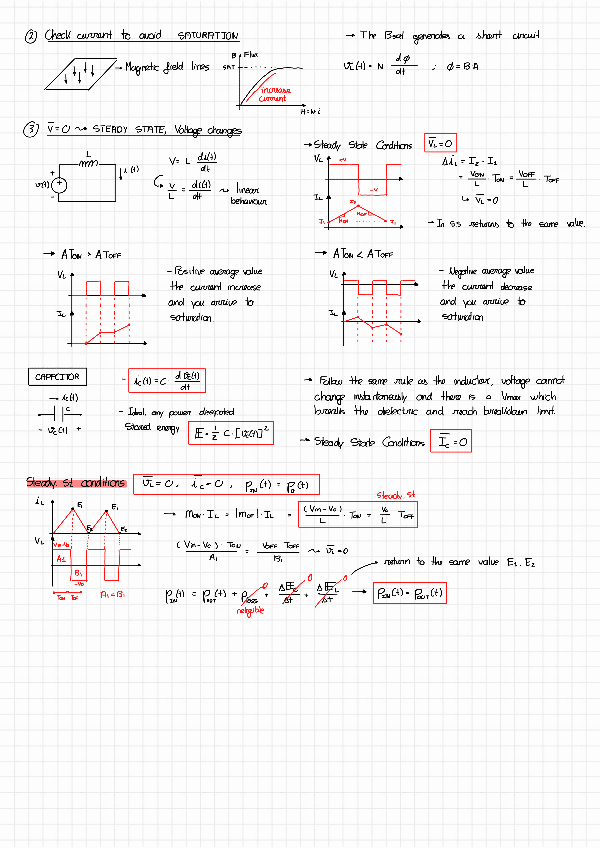 ② Check current to avoid SATURATION
→ Magnetic field lines
B Flux
SAT
increase
current
H=N·i
→ The Bsat generates a short circuit
VL(t) = N dφ/dt ; φ = B A
③ V̅=0 ⤳ STEADY STATE, Voltage changes
L
+
v(t)
-
↓ i(t)
V = L di(t)/dt
V/L = di(t)/dt ⤳ linear
behaviour
→ Steady State Conditions V̅L=0
VL
+V
-V
IL
I2
I1
I1
mON
mOFF
ΔiL = I2 - I1
= VON/L · TON = VOFF/L · TOFF
↳ V̅L=0
- In SS returns to the same value.
→ ATON > ATOFF
VL
IL
- Positive average value
the current increase
and you arrive to
saturation
→ ATON < ATOFF
VL
IL
- Negative average value
the current decrease
and you arrive to
saturation
CAPACITOR
→ ic(t)
C
- vc(t) +
- ic(t) = C dvc(t)/dt
- Ideal, any power dissipated
Stored energy E = 1/2 C·[vc(t)]²
→ Follow the same rule as the inductor, voltage cannot
change instantaneously and there is a Vmax which
breaks the dielectric and reach breakdown limit.
→ Steady State Conditions I̅c=0
Steady St conditions V̅L=0, i̅c=0, pIN(t) = pO(t)
iL
E1
E1
E2
E2
VL
Vin-Vo
A1
B1
-Vo
TON TOFF
A1=B1
Steady St
→ mON·IL = |mOFF|·IL = (Vin-Vo)/L · TON = Vo/L TOFF
(Vin-Vo) TON/A1 = VOFF TOFF/B1 ⤳ v̅L=0
return to the same value E1, E2
pIN(t) = pOUT(t) + pLOSS 0 + ΔEC/Δt 0 + ΔEL/Δt 0 → pIN(t) = pOUT(t)
neglegible